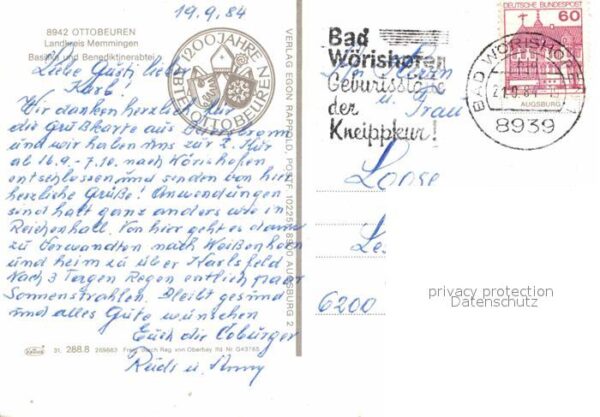 19.9.84
8942 OTTOBEUREN
Landkreis Memmingen
Basilika und Benediktinerabtei
1200 JAHRE ABTEI OTTOBEUREN
Liebe Gusti, lieber
Karl!
Wir danken herzlich für
die Grüßkarte aus
und wir haben uns zur 2. Kur
ab 16.9. - 7.10. nach Wörishofen
entschlossen und senden von hier
herzliche Grüße! Anwendungen
sind halt ganz anders wie in
Reichenhall. Von hier geht es dann
zu Verwandten nach Weißenhorn
und heim zu über Karlsfeld
Nach 3 Tagen Regen endlich paar
Sonnenstrahlen. Bleibt gesund
und alles Gute wünschen
Euch die Coburger
Rudi u. Anny
31. 288.8 269663 Freig. durch Reg. von Oberbay lfd. Nr G43765
VERLAG EGON RAPPOLD, POSTF. 10225, 8900 AUGSBURG 2
Bad
Wörishofen
Geburtsstätte
der
Kneippkur!
DEUTSCHE BUNDESPOST
60
BAD WÖRISHOFEN
AUGSBURG
8939
Herrn
u. Frau
Loose
6200
privacy protection
Datenschutz